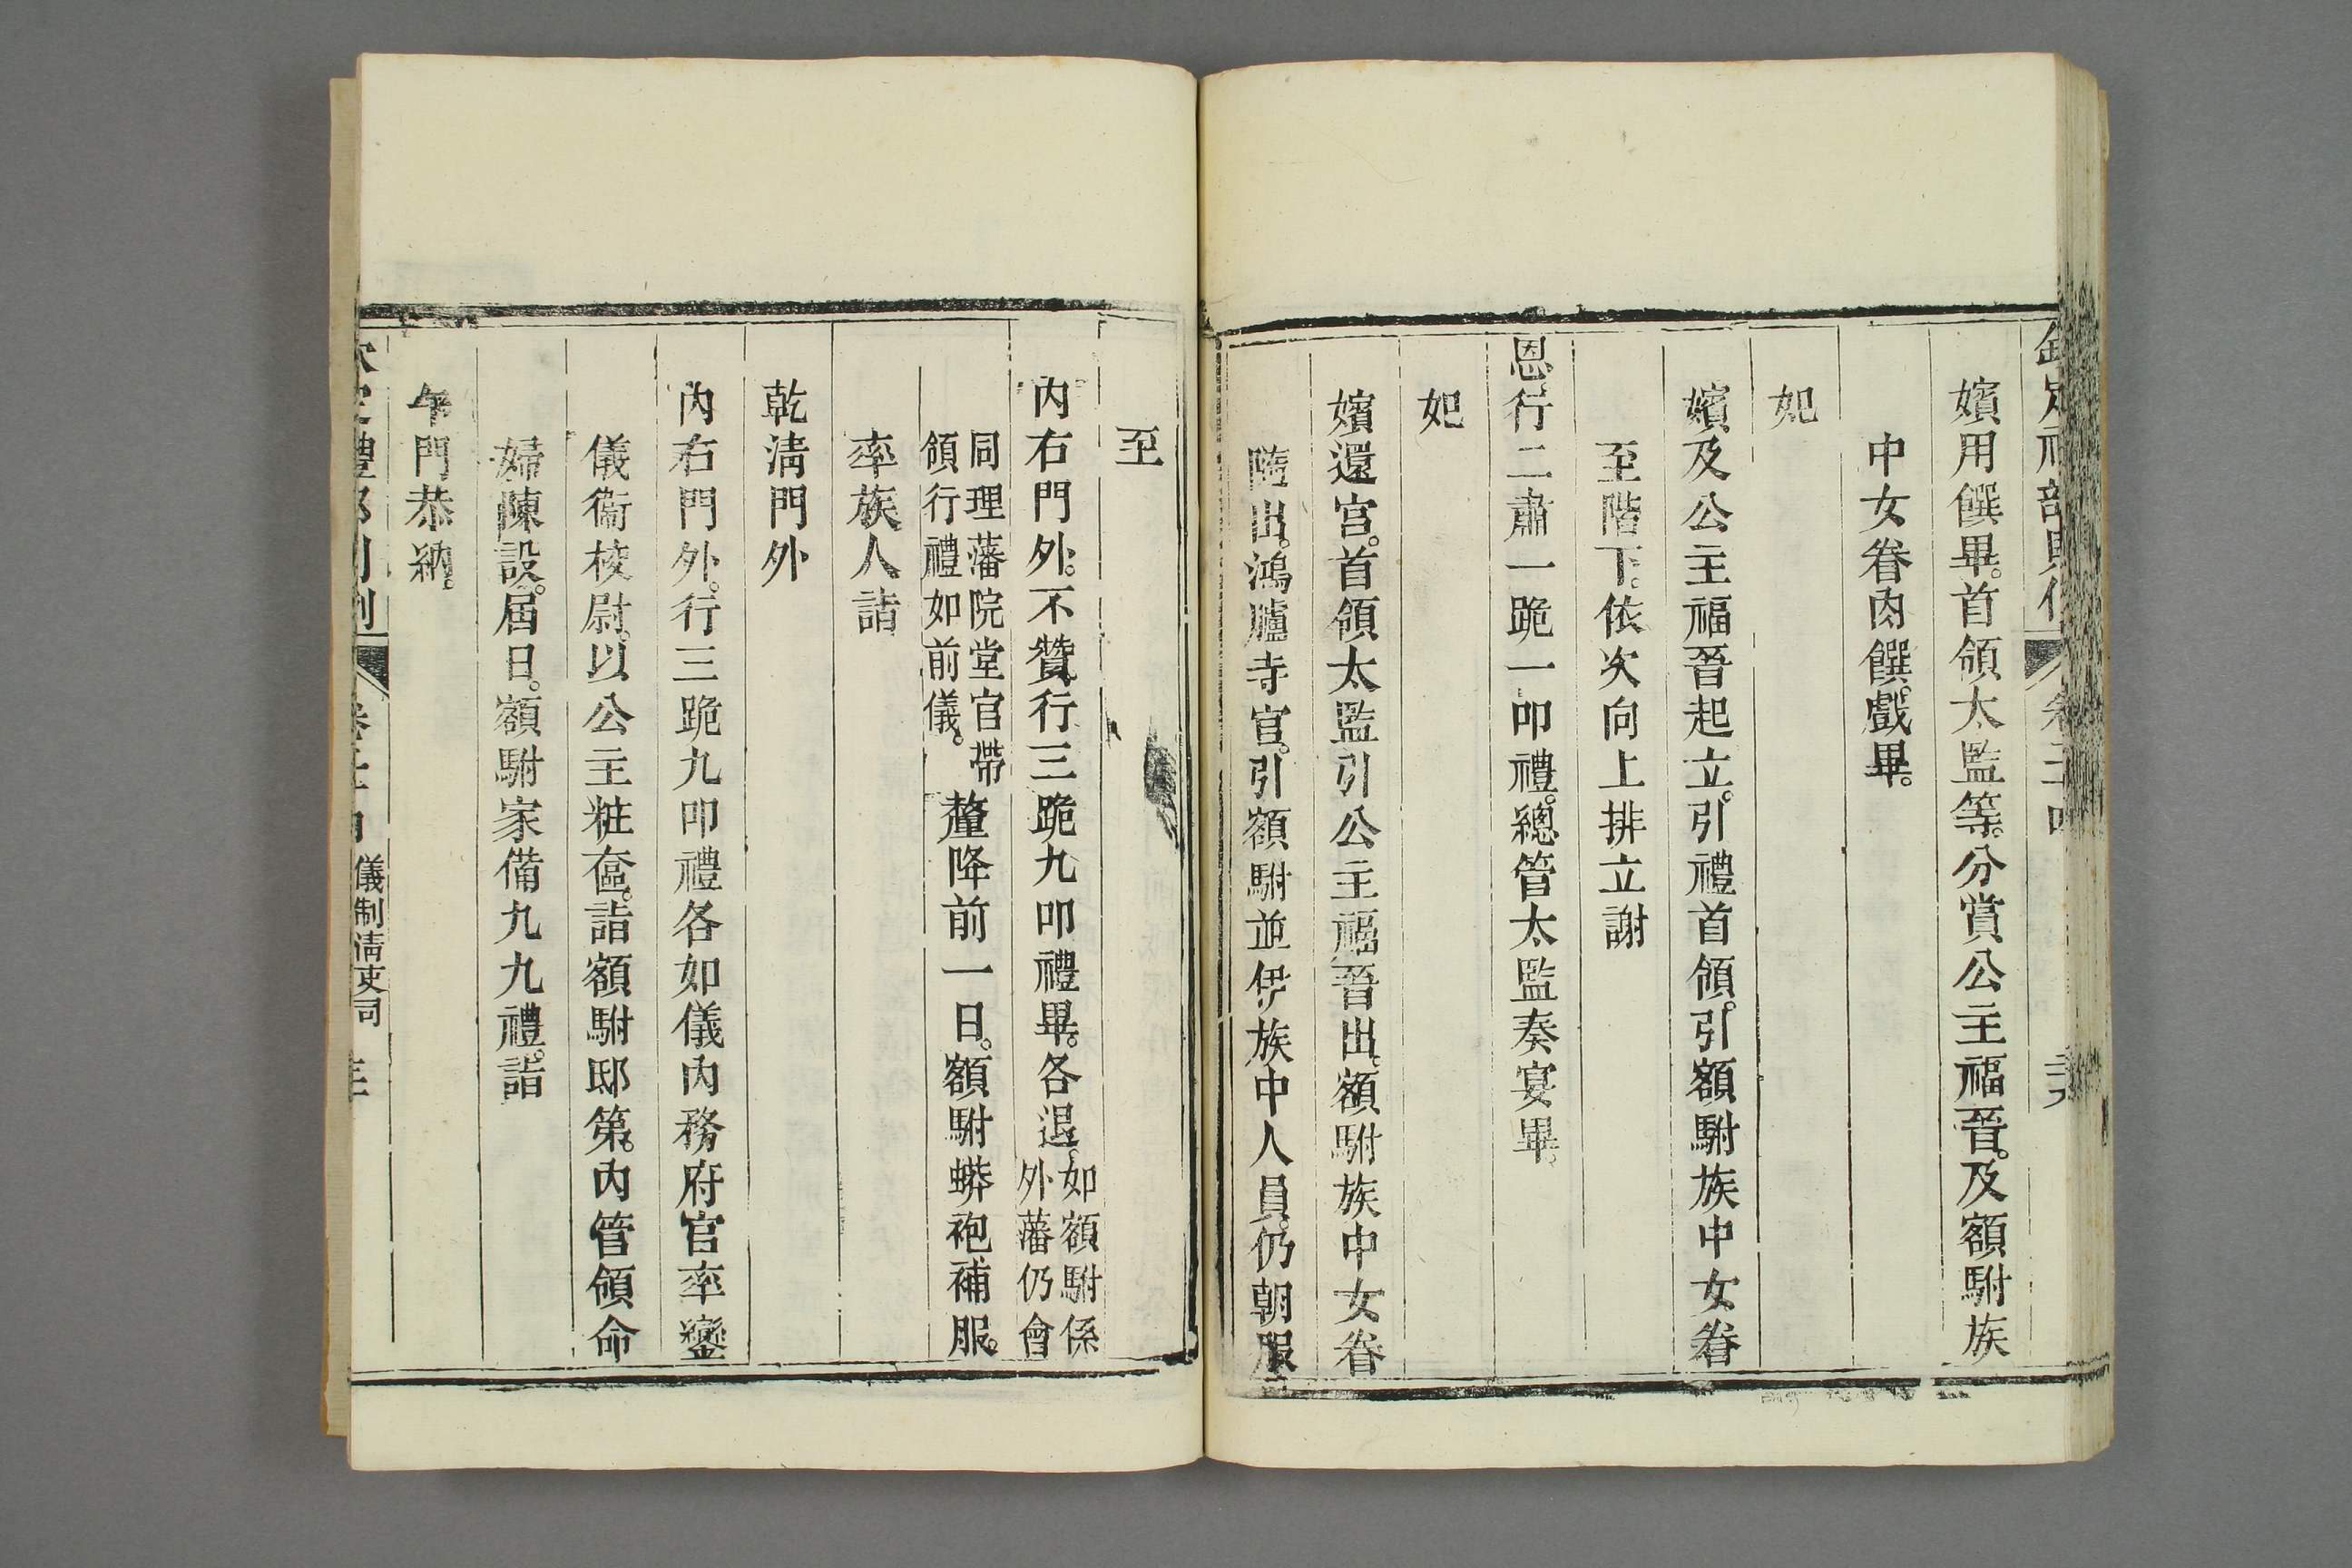 嬪用饌畢。首領太監等。分賞公主福晉。及額駙族
中女眷肉饌。戲畢。
妃
嬪及公主福晉起立。引禮首領。引額駙族中女眷
至階下。依次向上排立謝
恩。行二肅一跪一叩禮。總管太監奏宴畢。
妃
嬪還宮。首領太監引公主福晉出。額駙族中女眷
隨出。鴻臚寺官。引額駙並伊族中人員。仍朝服
至
內右門外。不贊行三跪九叩禮畢。各退。如額駙係外藩仍會
同理藩院堂官帶領行禮如前儀。釐降前一日。額駙蟒袍補服。
率族人詣
乾清門外
內右門外。行三跪九叩禮各如儀內務府官率鑾
儀衞校尉。以公主粧奩。詣額駙邸第。內管領命
婦陳設。屆日。額駙家備九九禮。詣
午門恭納。
儀制清吏司